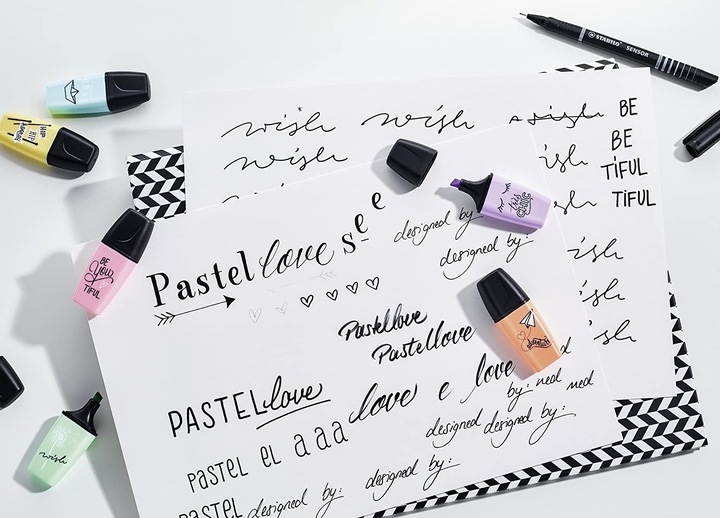 STABILO SENSOR
wish wish wish BE
wish BE
wish TiFUL
wish TiFUL
wish
wish
wish
HIP HIP HURRAY
BE YOU TiFUL
wish
designed by:
designed by:
Pastel love see
Pastellove
Pastellove
PASTELlove love e love
by: ned ned
designed designed by:
PASTEL EL a a a
designed by:
PASTEL designed by: